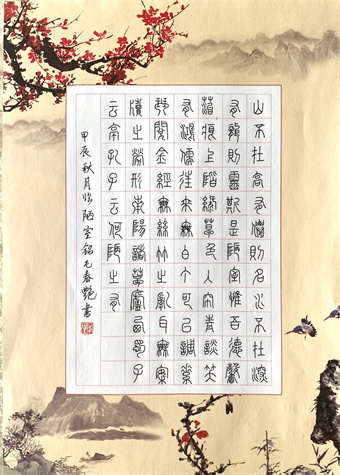 山不在高有僊則名水不在深
有龍則靈斯是陋室惟吾德馨
苔痕上階綠草色入簾青談笑
有鴻儒往來無白丁可以調素
琴閱金經無絲竹之亂耳無案
牘之勞形南陽諸葛廬西蜀子
云亭孔子云何陋之有
甲辰秋月临陋室銘毛春艷書